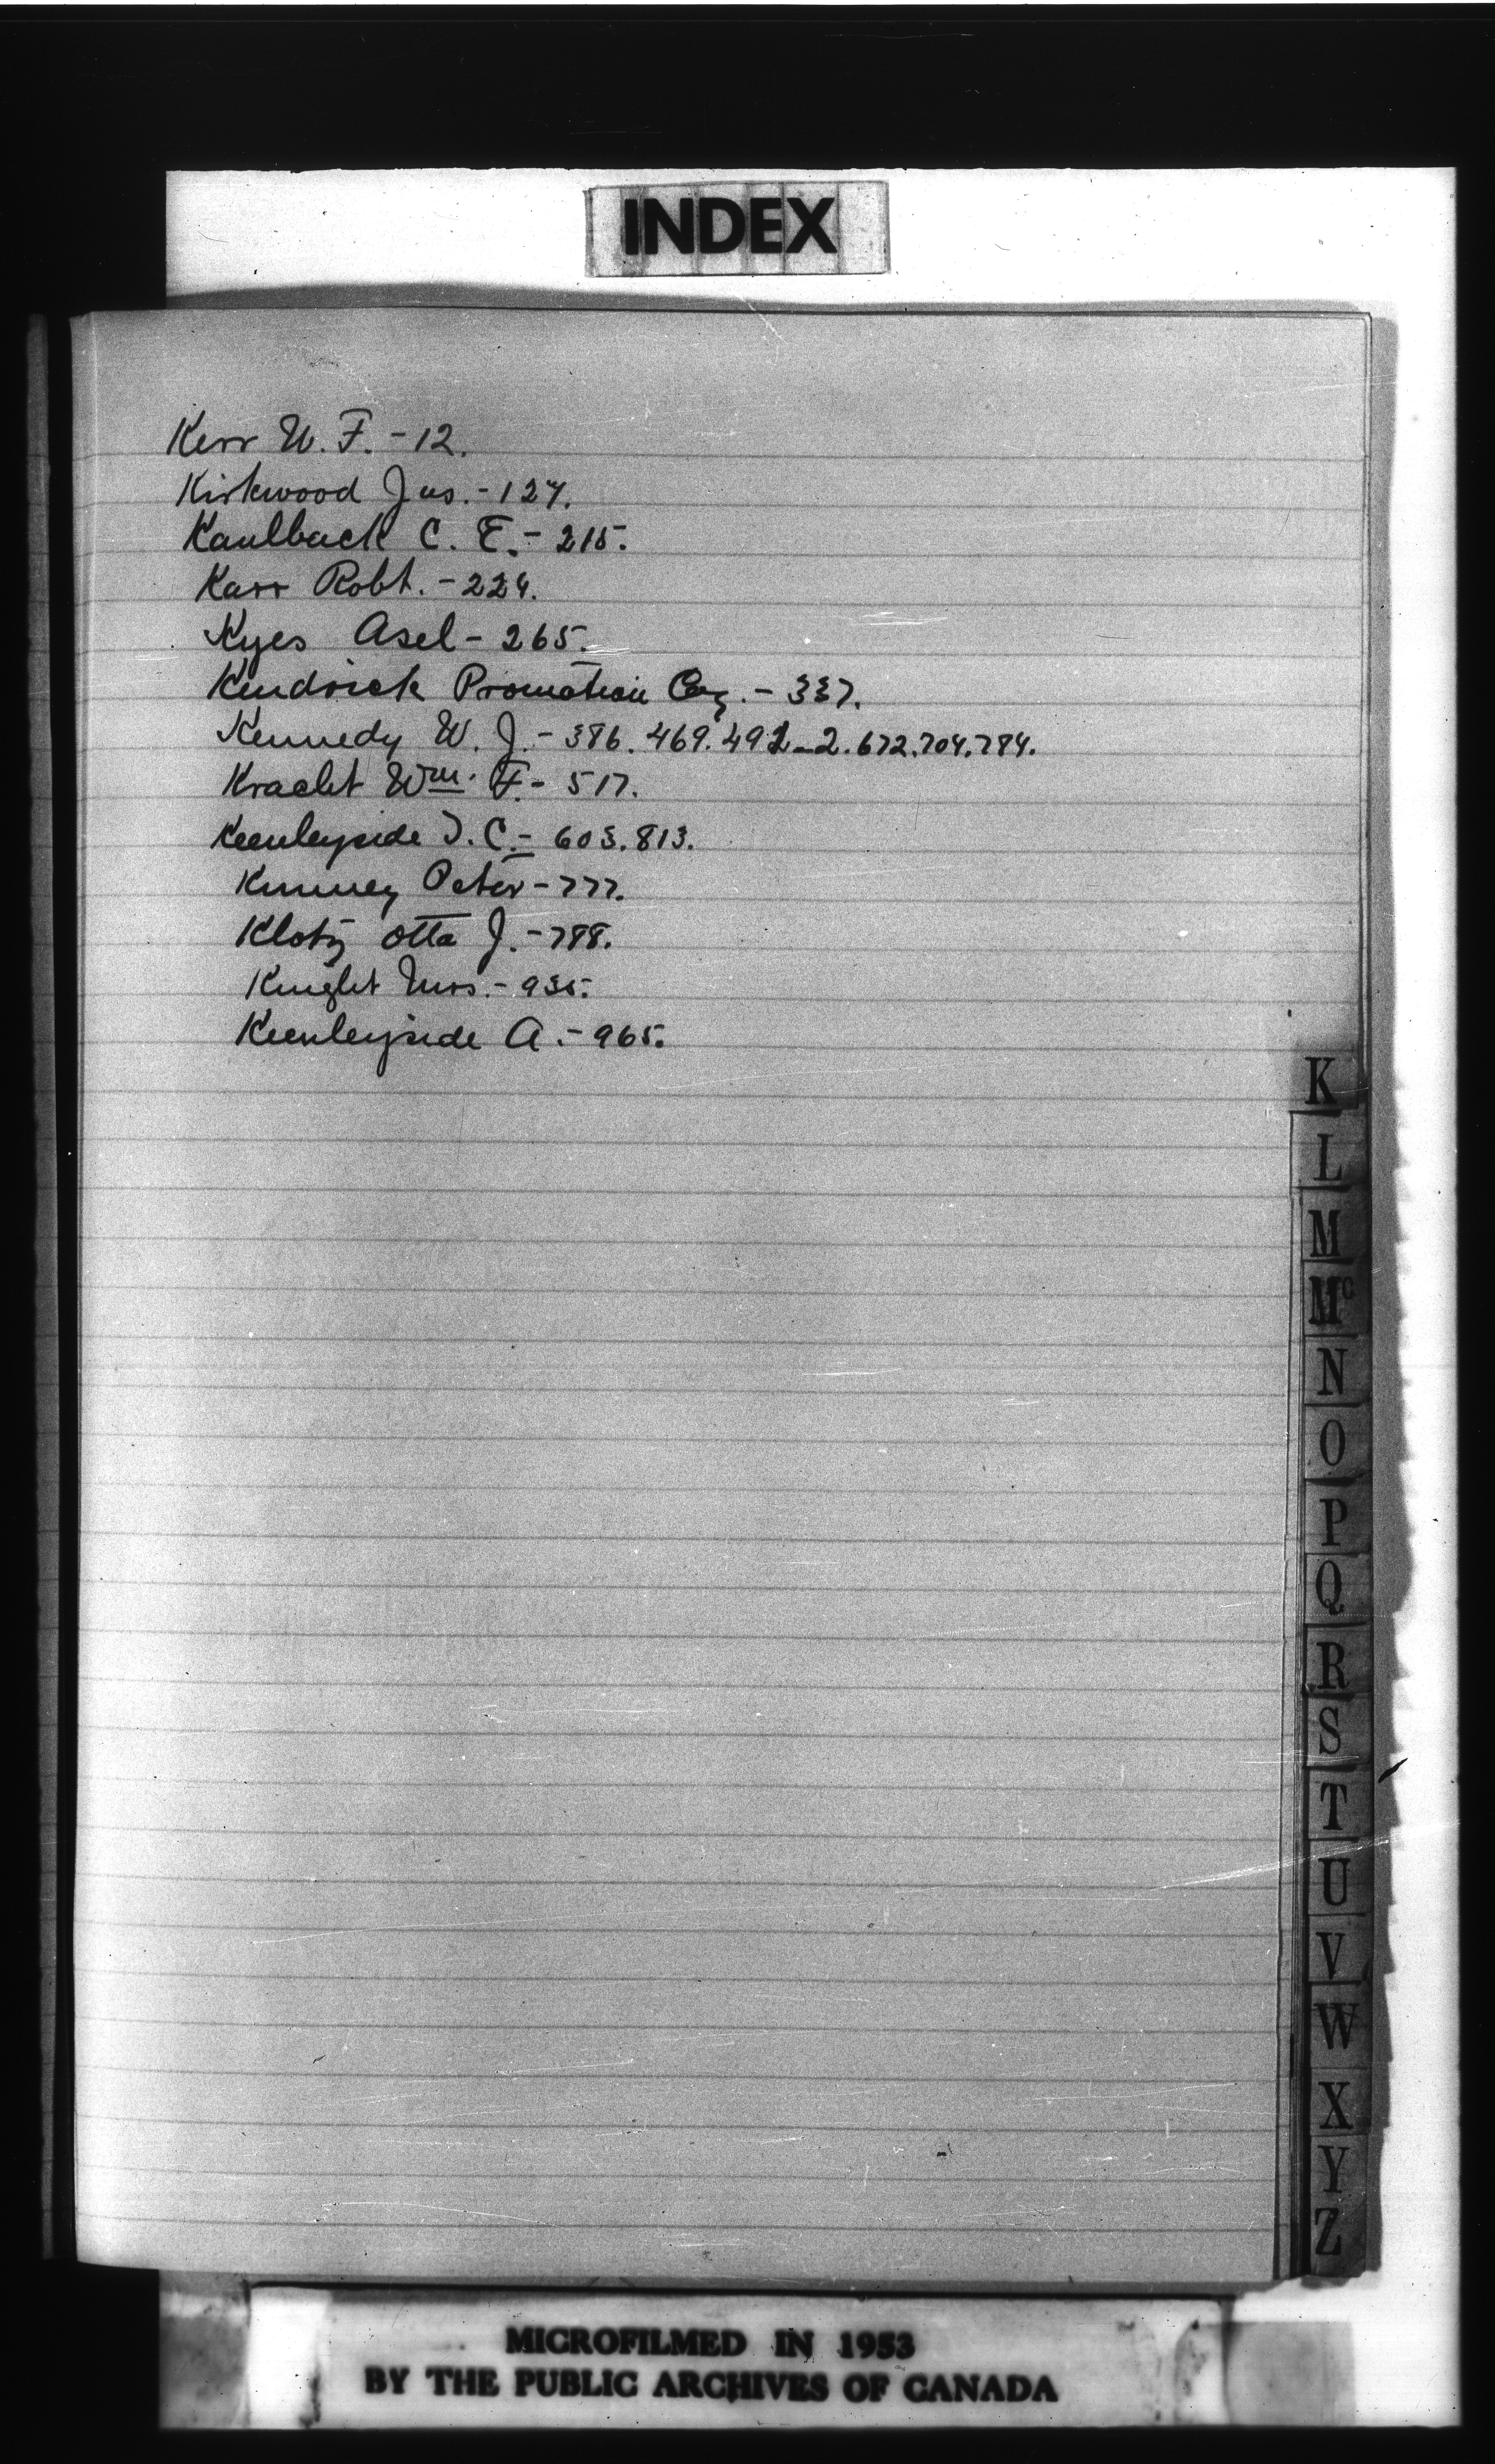 INDEX
Kerr W. F. - 12.
Kirkwood Jas. - 127.
Kaulback C. E. - 215.
Karr Robt. - 224.
Kyes Asel - 265.
Kendrick Promotion Coy. - 337.
Kennedy W. J. - 386. 469. 491-2. 672. 704. 784.
Kracht Wm. F. - 517.
Keenleyside J. C. - 603. 813.
Kinney Peter - 777.
Klotz Otto J. - 788.
Knight Mrs. - 935.
Keenleyside A. - 965.
K
L
M
Mc
N
O
P
Q
R
S
T
U
V
W
X
Y
Z
MICROFILMED IN 1953
BY THE PUBLIC ARCHIVES OF CANADA